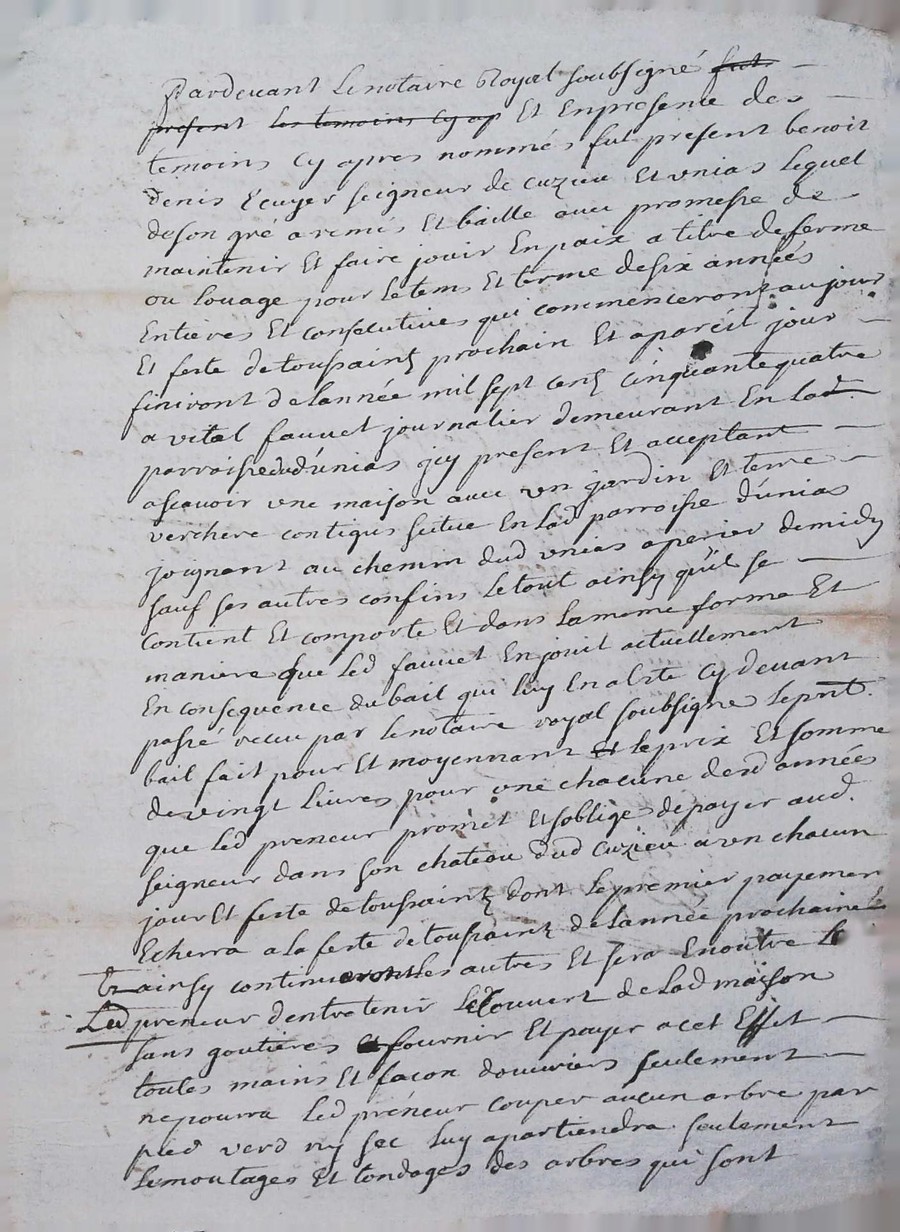 Pardevant Le notaire Royal soubsigné fut
present les temoins cy ap Et Enpresence des
temoins cy apres nommés fut present benoit
denis Ecuyer seigneur de cuzieu Et unias Lequel
deson gré a remis Et baillé avec promesse de
maintenir Et faire jouir En paix a titre deferme
ou louage pour Letems Et terme desix années
Entieres Et consecutives qui commenceront au jour
Et feste detoussaintz prochain Et apareil jour
finiront delannée mil sept centz cinquante quatre
a vital fauvet journalier demeurant En lad.
parroisse dud unias icy present Et acceptant
ascavoir une maison avec un jardin Et terre
verchere contigus scitue En lad parroisse d'unias
joignant au chemin dud unias a perier demidy
sauf ses autres confins Letout ainsy qu'il se
contient Et comporte Et dans lameme forme Et
maniere que Led fauvet En jouit actuellement
En consequence dubail qui luy En a Esté cy devant
passé receu par Lenotaire royal soubsigné Leprnt.
bail fait pour Et moyennant Et le prix Et somme
devingt Livres pour une chacune desd années
que Led preneur promet Et soblige depayer aud.
seigneur dans son chateau dud cuzieu a un chacun
jour Et feste detoussaintz dont Lepremier payemen
Echerra a la feste detoussaintz delannée prochaine
Et ainsy continueront les autres Et sera Enoutre
Led preneur dentretenir Le Couvert de Lad maison
sans goutieres Et fournir Et payer a cet Effet
toutes mains Et facon douvriers seulement
nepourra Led preneur couper aucun arbre par
pied verd ny sec luy apartiendra seulement
Lemontages Et tondages des arbres qui sont